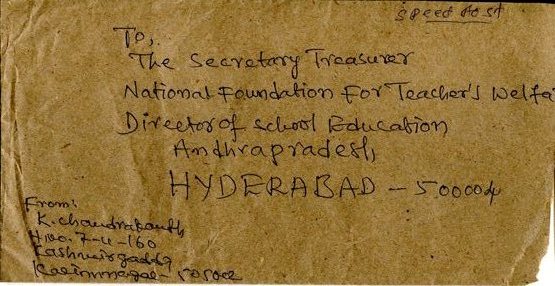 speed post
To,
The Secretary Treasurer
National Foundation For Teacher's Welfa
Director of school Education
Andhrapradesh,
HYDERABAD - 500004
From:
K. chandrakanth
H.no. 7-4-160
Kashmirgadda
Karimnagar - 505002